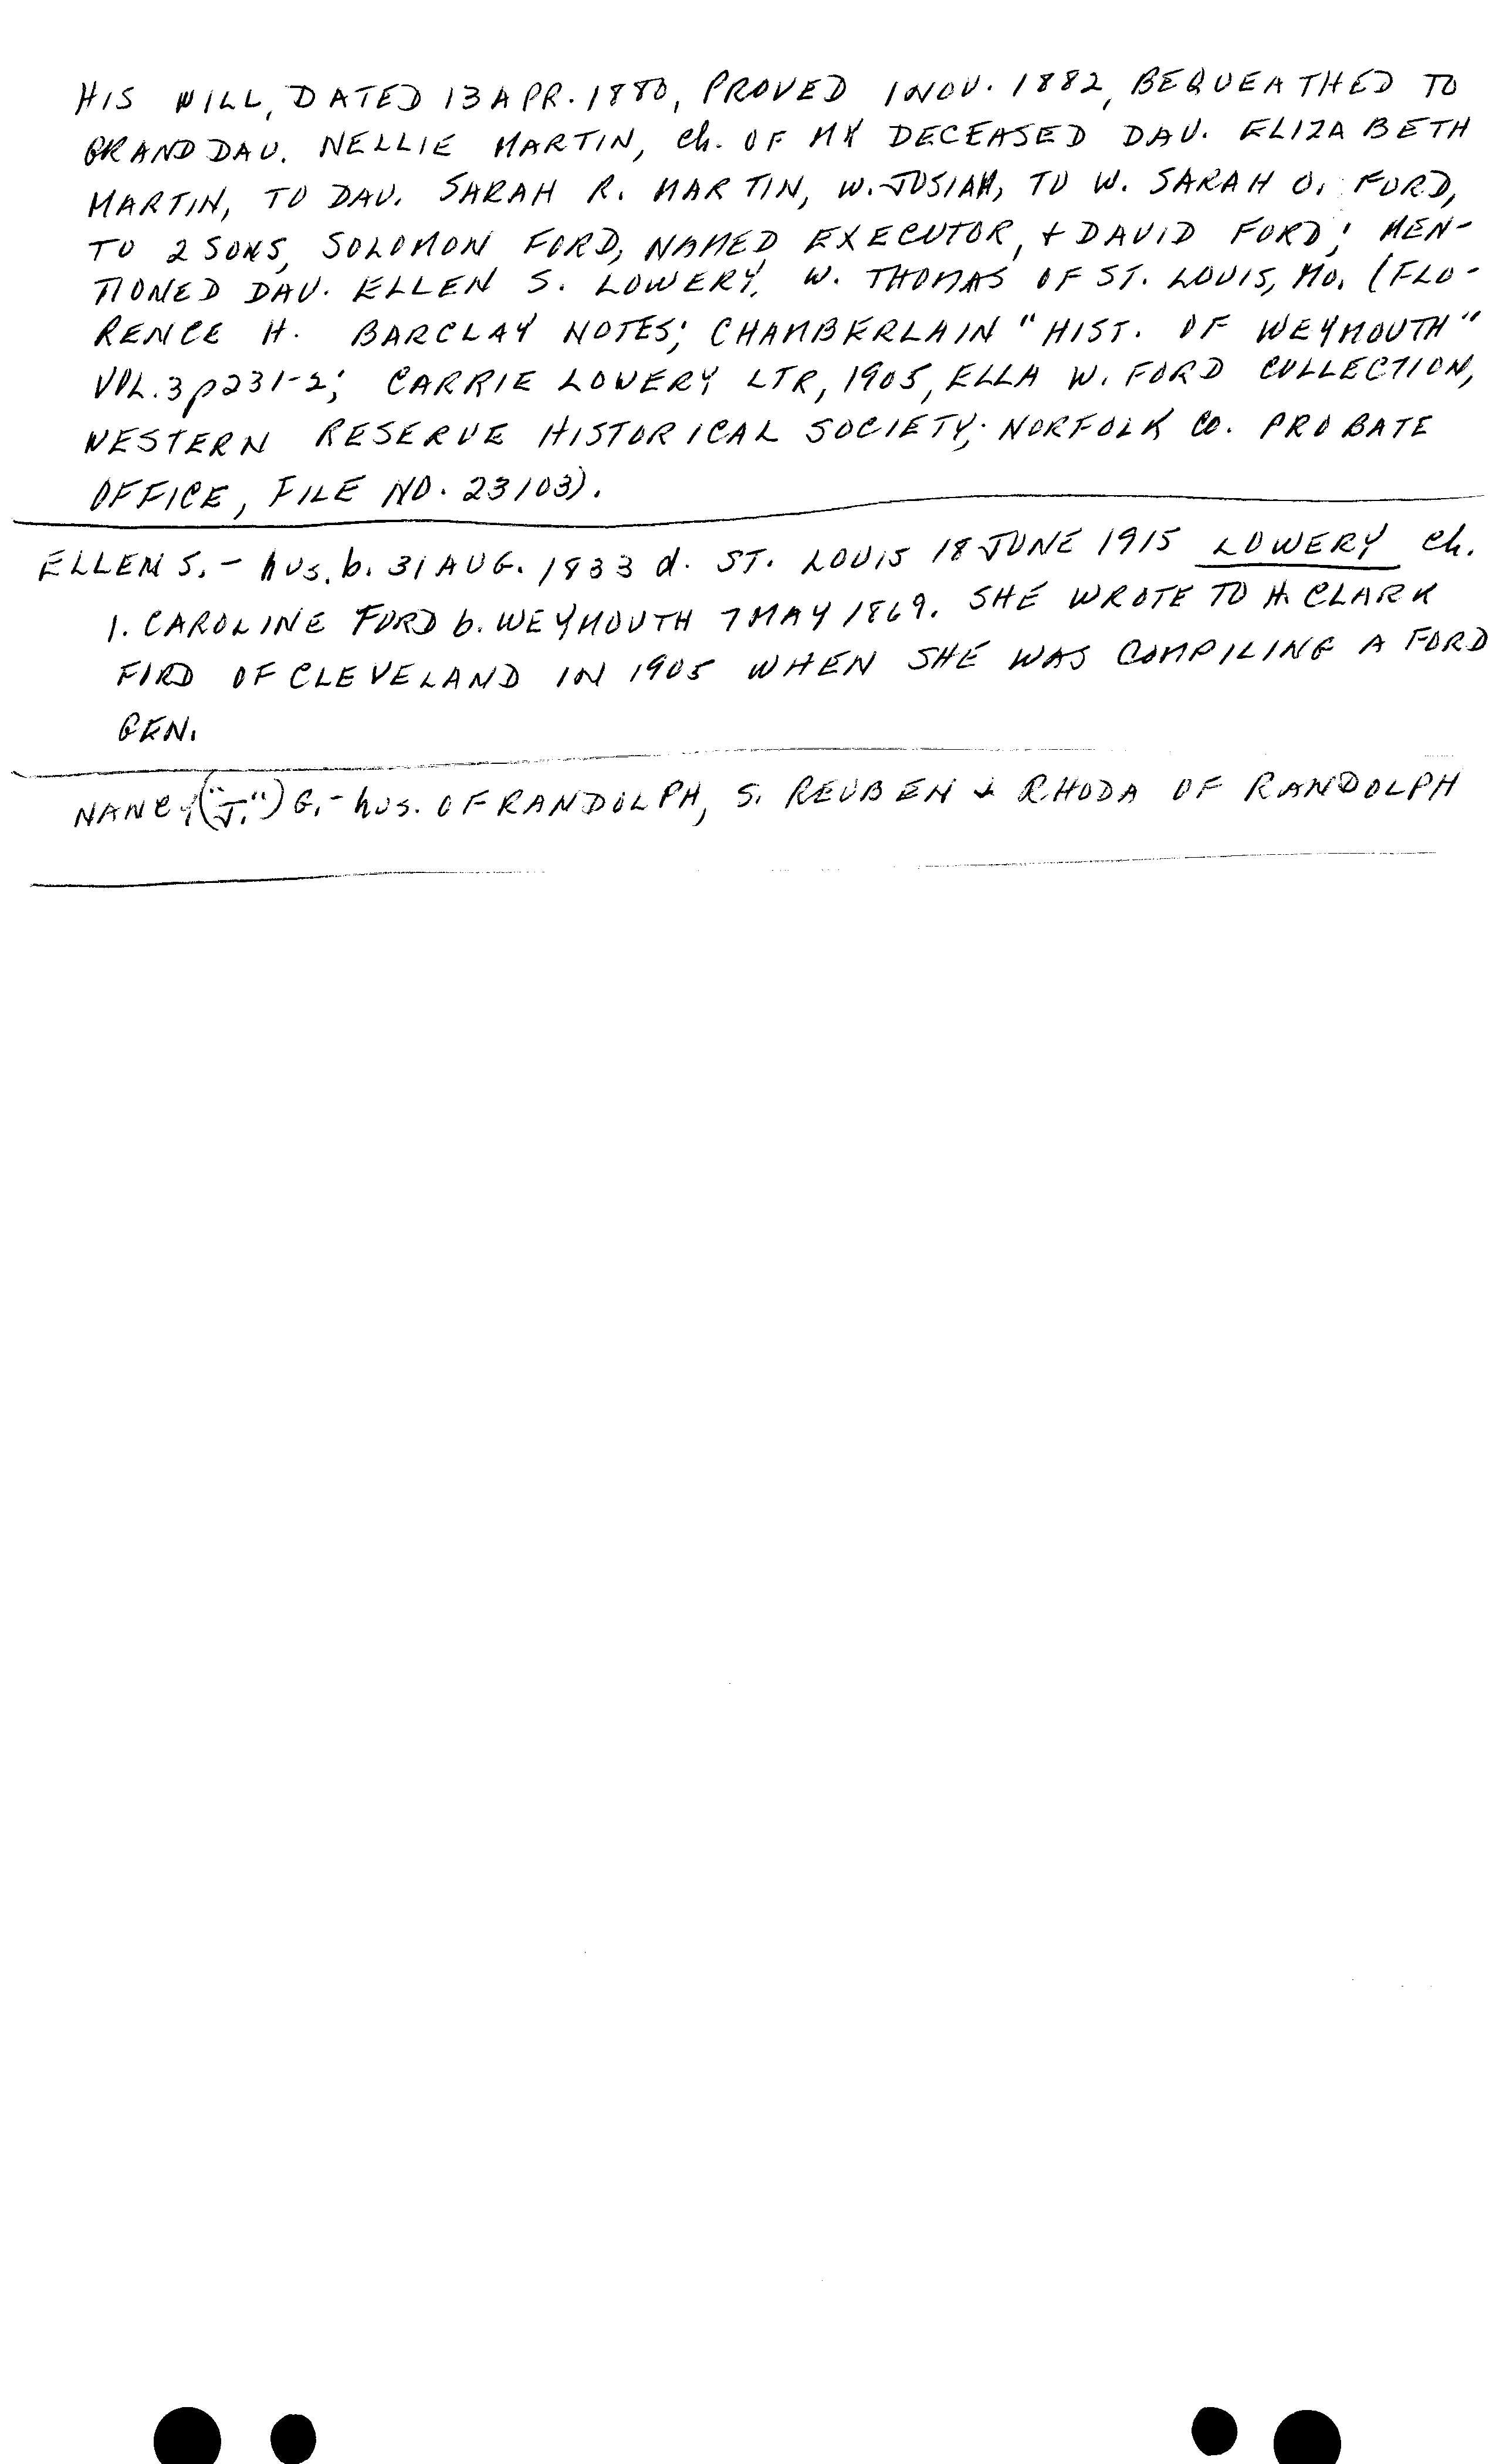 HIS WILL, DATED 13 APR. 1880, PROVED 1 NOV. 1882, BEQUEATHED TO
GRAND DAU. NELLIE MARTIN, ch. OF MY DECEASED DAU. ELIZABETH
MARTIN, TO DAU. SARAH R. MARTIN, W. JOSIAH, TO W. SARAH O. FORD,
TO 2 SONS, SOLOMON FORD, NAMED EXECUTOR, + DAVID FORD; MEN-
TIONED DAU. ELLEN S. LOWERY, W. THOMAS OF ST. LOUIS, MO. (FLO-
RENCE H. BARCLAY NOTES; CHAMBERLAIN "HIST. OF WEYMOUTH"
VOL. 3 p231-2; CARRIE LOWERY LTR, 1905, ELLA W. FORD COLLECTION,
WESTERN RESERVE HISTORICAL SOCIETY; NORFOLK CO. PROBATE
OFFICE, FILE NO. 23103).
ELLEN S. - hus. b. 31 AUG. 1833 d. ST. LOUIS 18 JUNE 1915 LOWERY ch.
1. CAROLINE FORD b. WEYMOUTH 7 MAY 1869. SHE WROTE TO H. CLARK
FORD OF CLEVELAND IN 1905 WHEN SHE WAS COMPILING A FORD
GEN.
NANCY ("J.") G. - hus. OF RANDOLPH, S. REUBEN + RHODA OF RANDOLPH